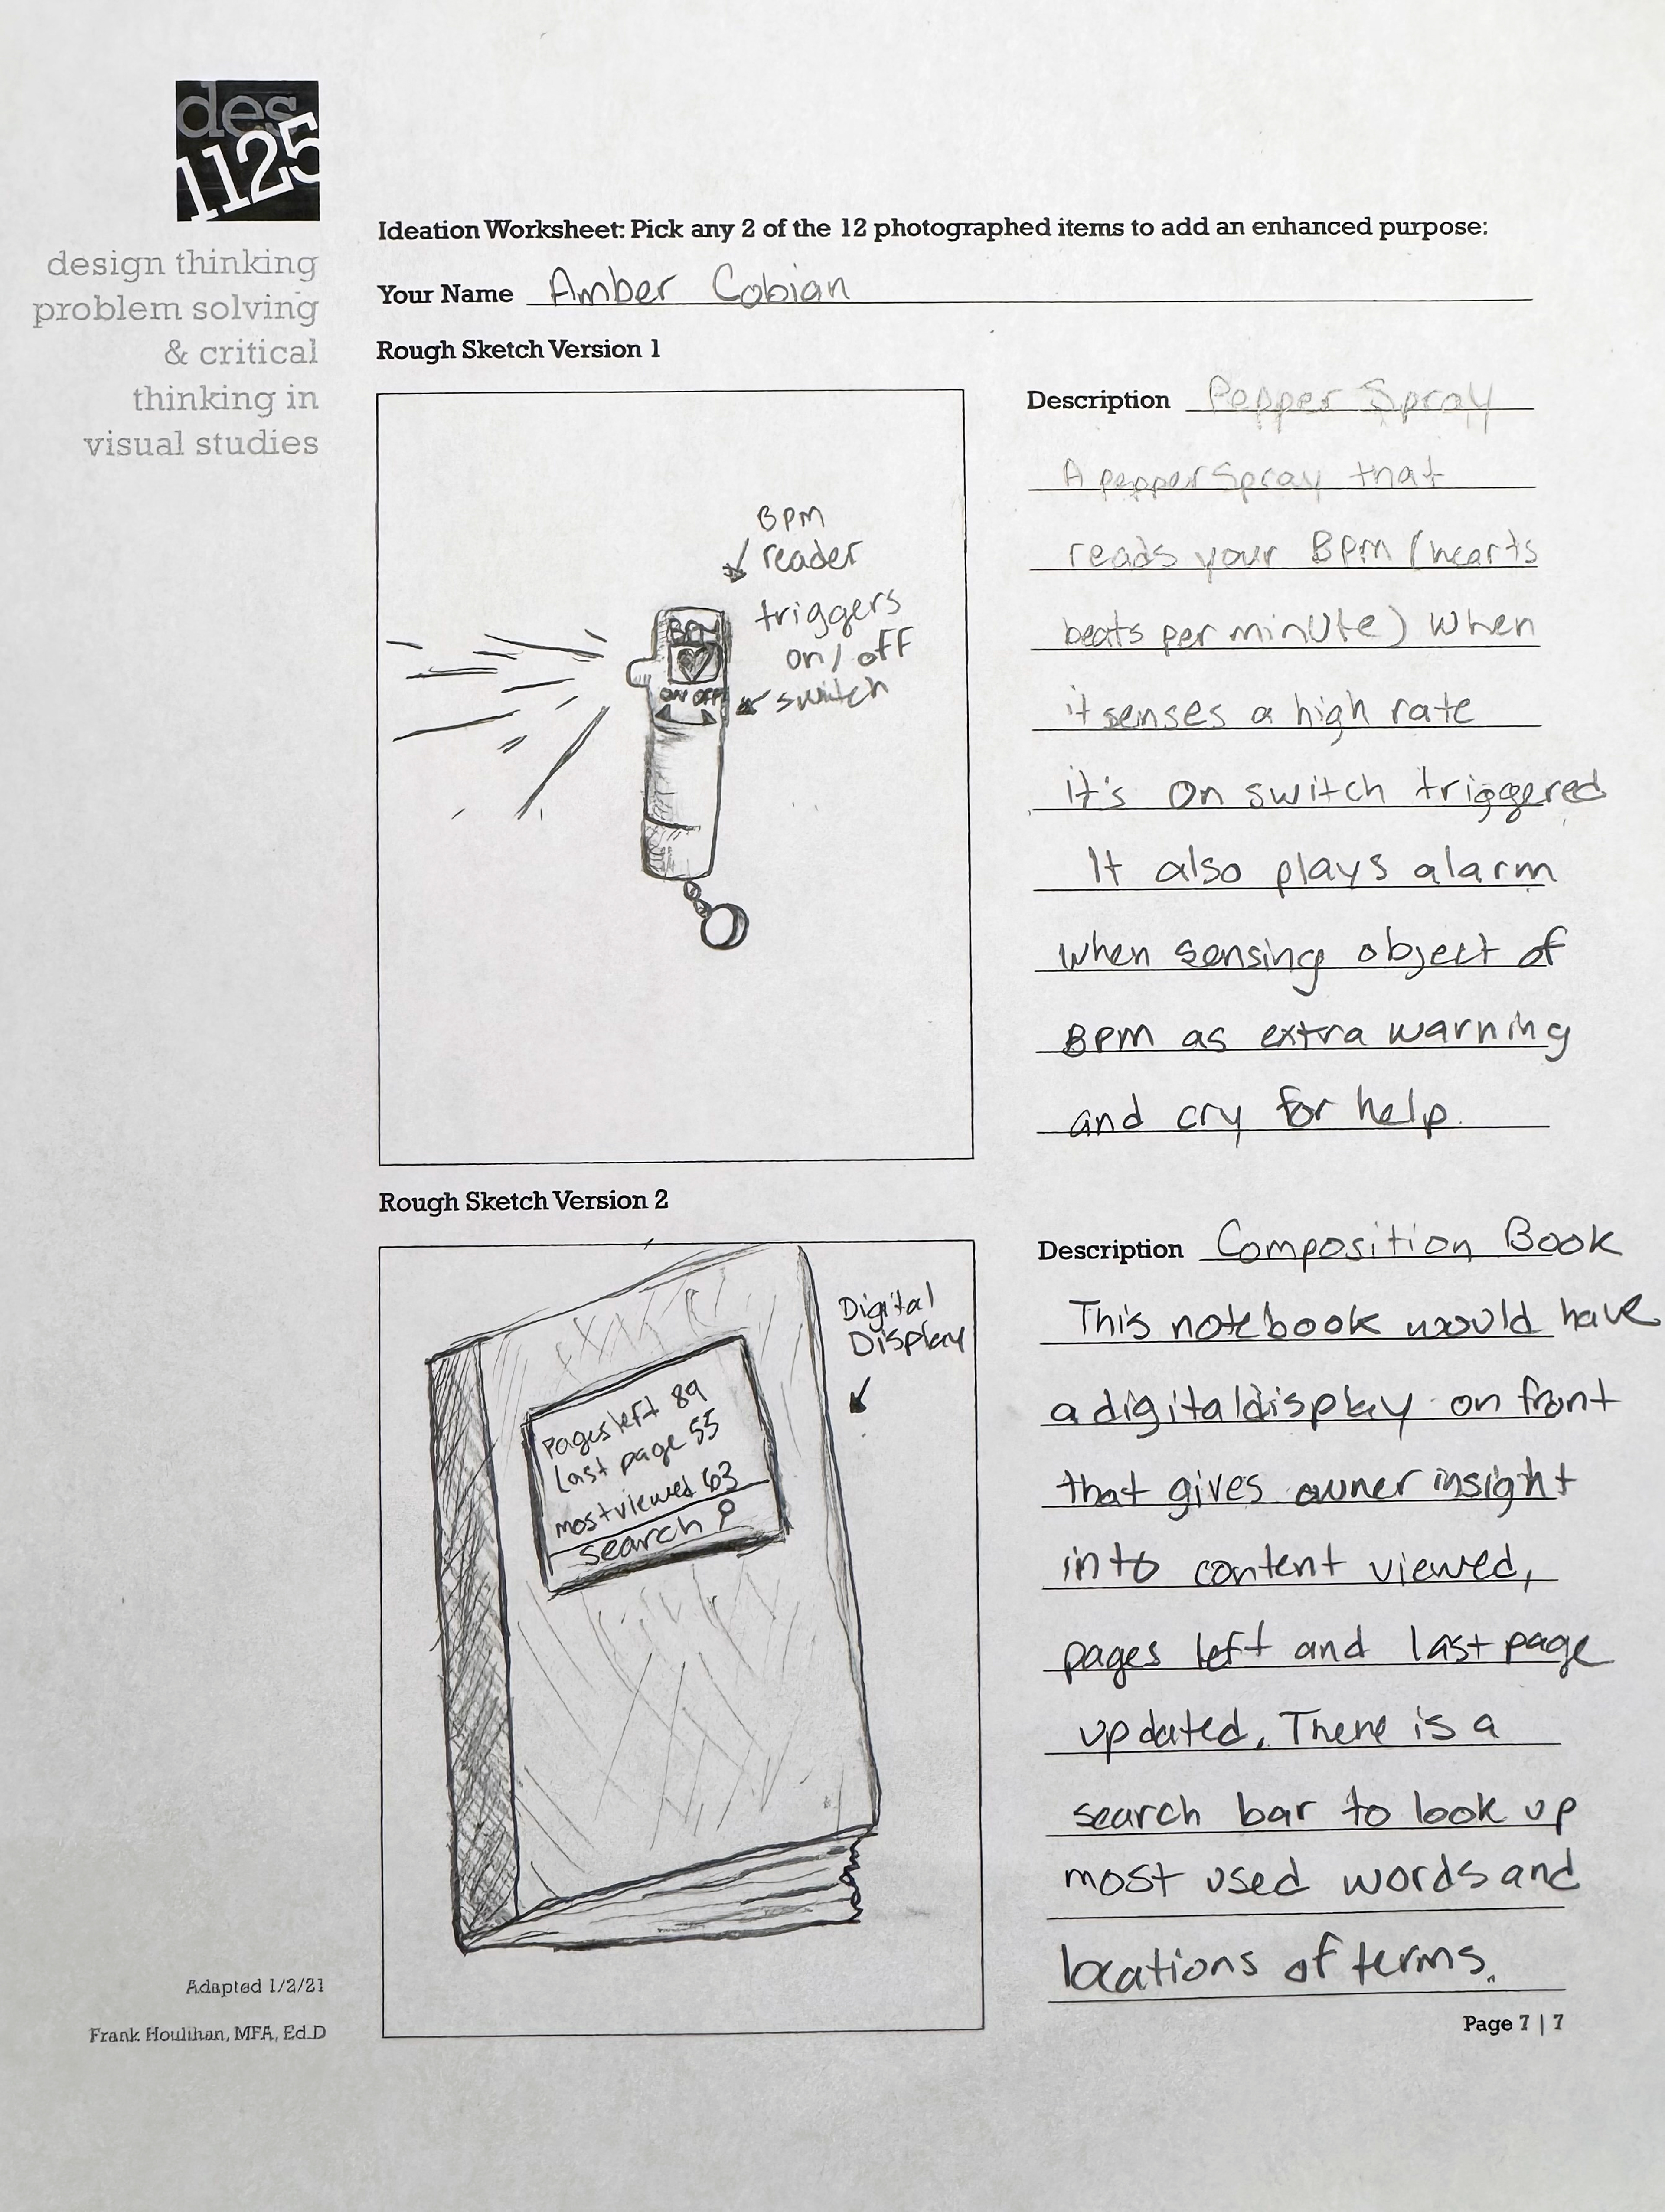 des
1125
design thinking
problem solving
& critical
thinking in
visual studies
Ideation Worksheet: Pick any 2 of the 12 photographed items to add an enhanced purpose:
Your Name Amber Cobian
Rough Sketch Version 1
BPM
reader
triggers
on / off
switch
BPM
ON OFF
Description Pepper Spray
A pepper Spray that
reads your BPM (hearts
beats per minute) when
it senses a high rate
it's on switch triggered
It also plays alarm
when sensing object of
BPM as extra warning
and cry for help.
Rough Sketch Version 2
Digital
Display
Pages left 89
Last page 55
most viewed 63
search
Description Composition Book
This notebook would have
a digital display on front
that gives owner insight
into content viewed,
pages left and last page
updated. There is a
search bar to look up
most used words and
locations of terms.
Adapted 1/2/21
Frank Houlihan, MFA, Ed.D
Page 7 | 7